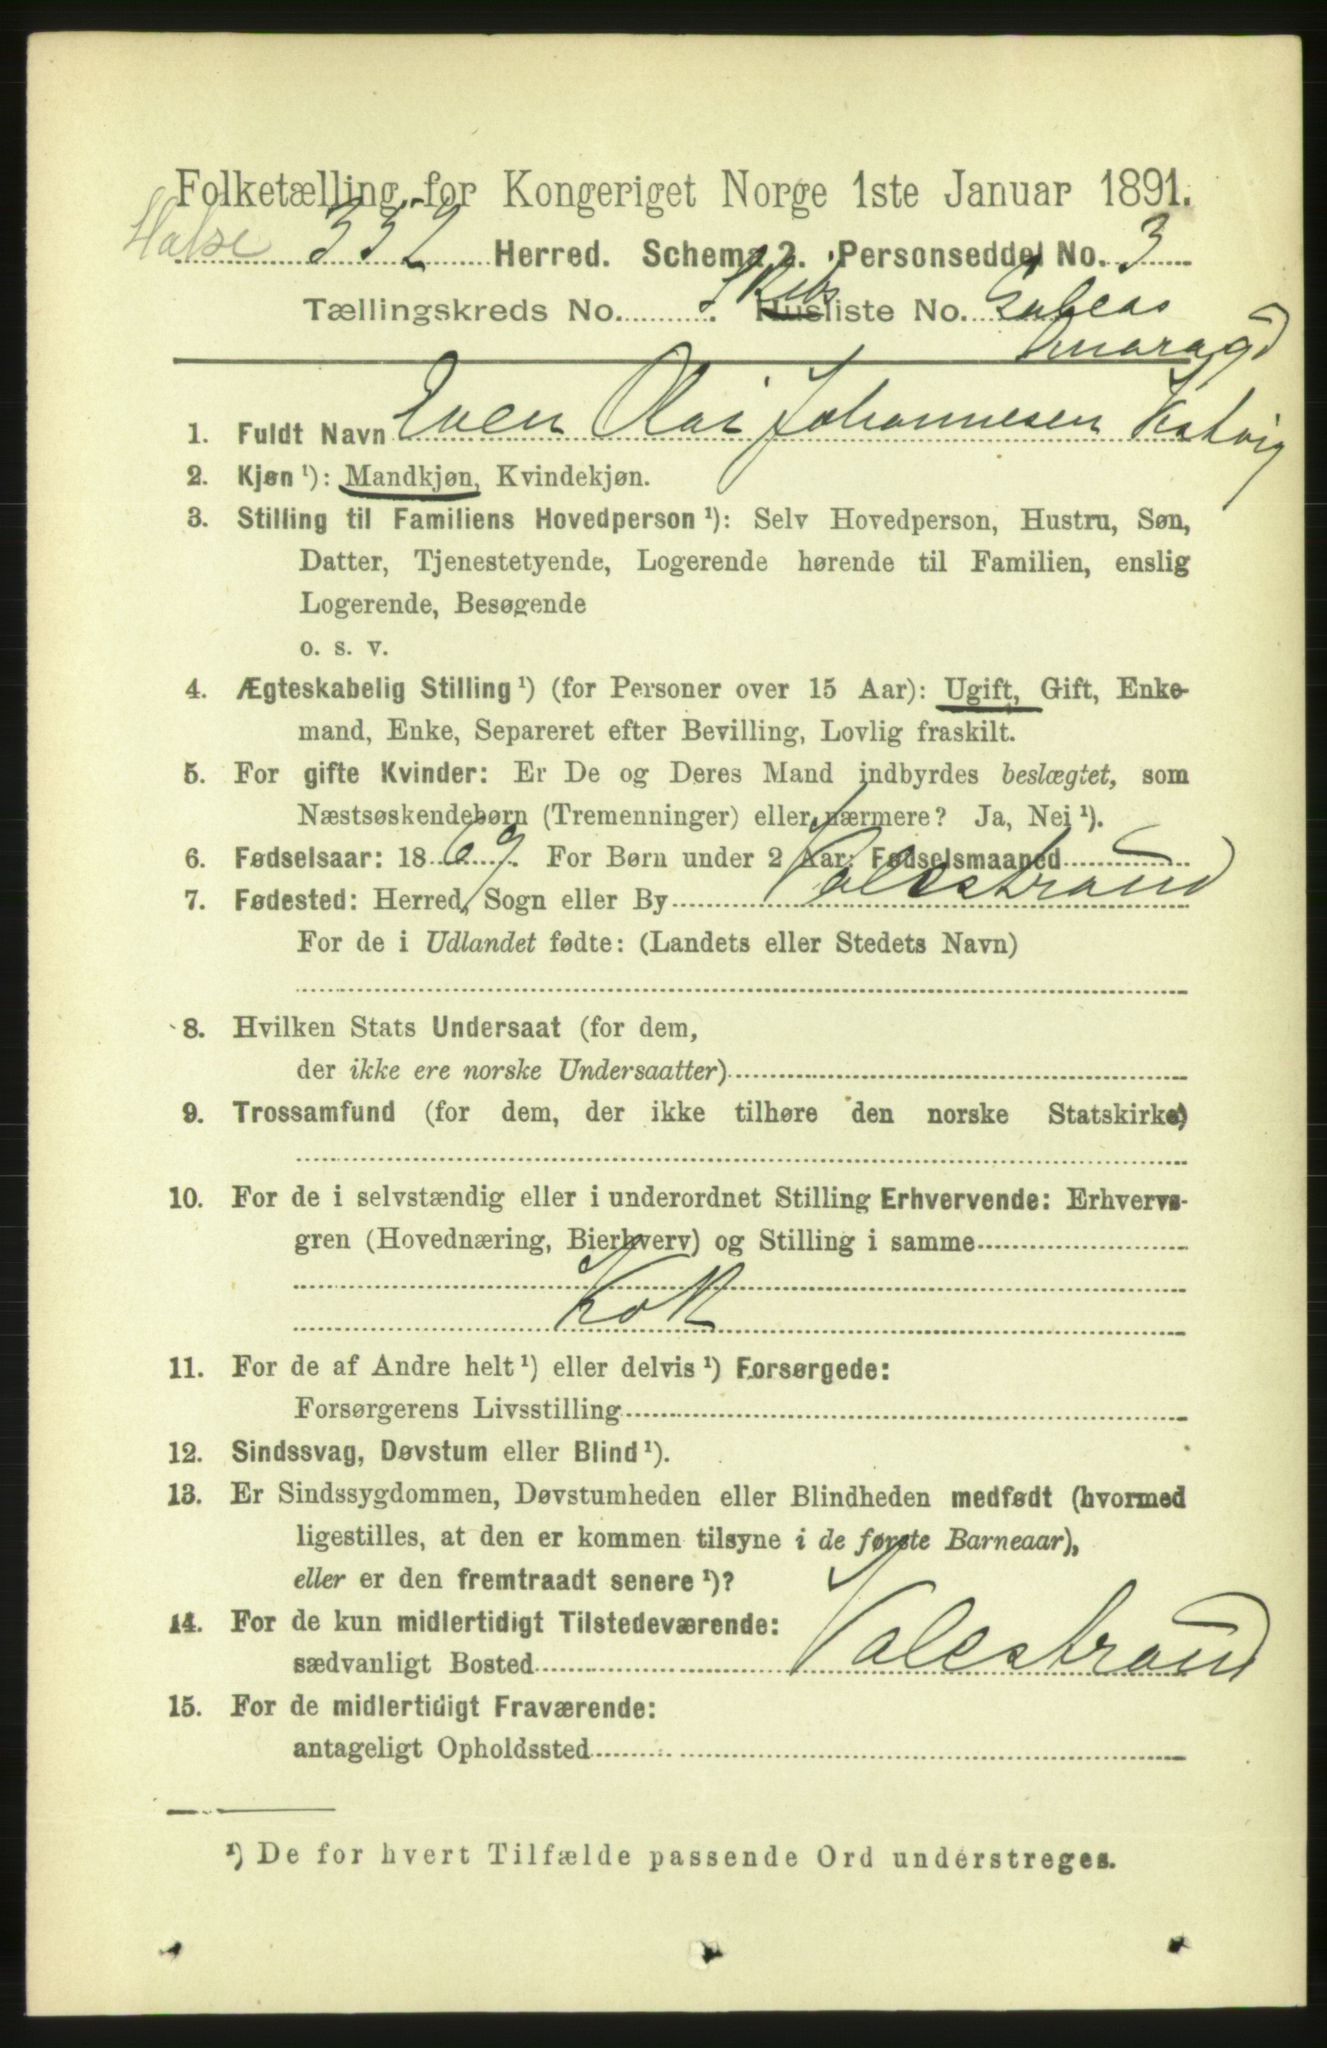 Folketælling for Kongeriget Norge 1ste Januar 1891.
Halse 332 Herred. Schema 2. Personseddel No. 3
Tællingskreds No. Skibs Husliste No. Galeas
Smaragd
1. Fuldt Navn Even Olai Johannesen
2. Kjøn ¹): Mandkjøn, Kvindekjøn.
3. Stilling til Familiens Hovedperson ¹): Selv Hovedperson, Hustru, Søn,
Datter, Tjenestetyende, Logerende hørende til Familien, enslig
Logerende, Besøgende
o. s. v.
4. Ægteskabelig Stilling ¹) (for Personer over 15 Aar): Ugift, Gift, Enke-
mand, Enke, Separeret efter Bevilling, Lovlig fraskilt.
5. For gifte Kvinder: Er De og Deres Mand indbyrdes beslægtet, som
Næstsøskendebørn (Tremenninger) eller nærmere? Ja, Nei ¹).
6. Fødselsaar: 1869. For Børn under 2 Aar: Fødselsmaaned
7. Fødested: Herred, Sogn eller By Valestrand
For de i Udlandet fødte: (Landets eller Stedets Navn)
8. Hvilken Stats Undersaat (for dem,
der ikke ere norske Undersaatter)
9. Trossamfund (for dem, der ikke tilhøre den norske Statskirke)
10. For de i selvstændig eller i underordnet Stilling Erhvervende: Erhvervs-
gren (Hovednæring, Bierhverv) og Stilling i samme
Kok
11. For de af Andre helt ¹) eller delvis ¹) Forsørgede:
Forsørgerens Livsstilling
12. Sindssvag, Døvstum eller Blind ¹).
13. Er Sindssygdommen, Døvstumheden eller Blindheden medfødt (hvormed
ligestilles, at den er kommen tilsyne i de første Barneaar),
eller er den fremtraadt senere ¹)?
14. For de kun midlertidigt Tilstedeværende:
sædvanligt Bosted Valestrand
15. For de midlertidigt Fraværende:
antageligt Opholdssted
¹) De for hvert Tilfælde passende Ord understreges.